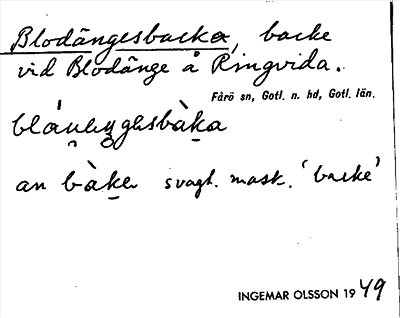 Blodängesbacke, backe
vid Blodänge å Ringvida.
Fårö sn, Gotl. n. hd, Gotl. län.
an bàke svagt. mask. 'backe'
INGEMAR OLSSON 1949